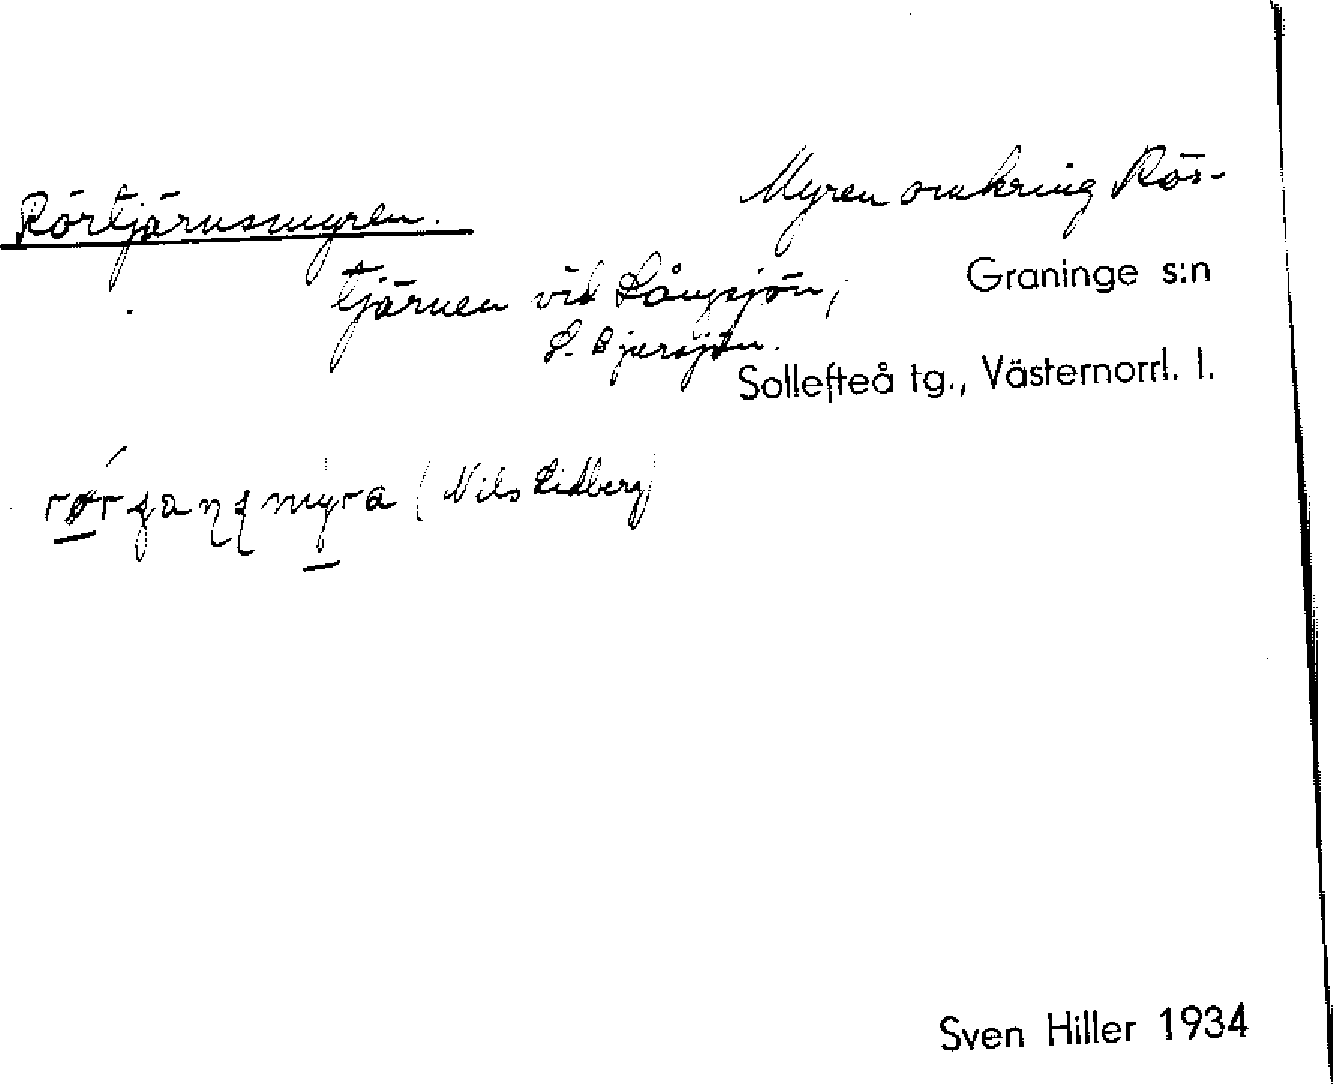 Rörtjärnsmyren.
Myren omkring Rör-
tjärnen vid Långsjön,
Graninge s:n
Sollefteå tg., Västernorrl. l.
(Nils Lidberg)
Sven Hiller 1934